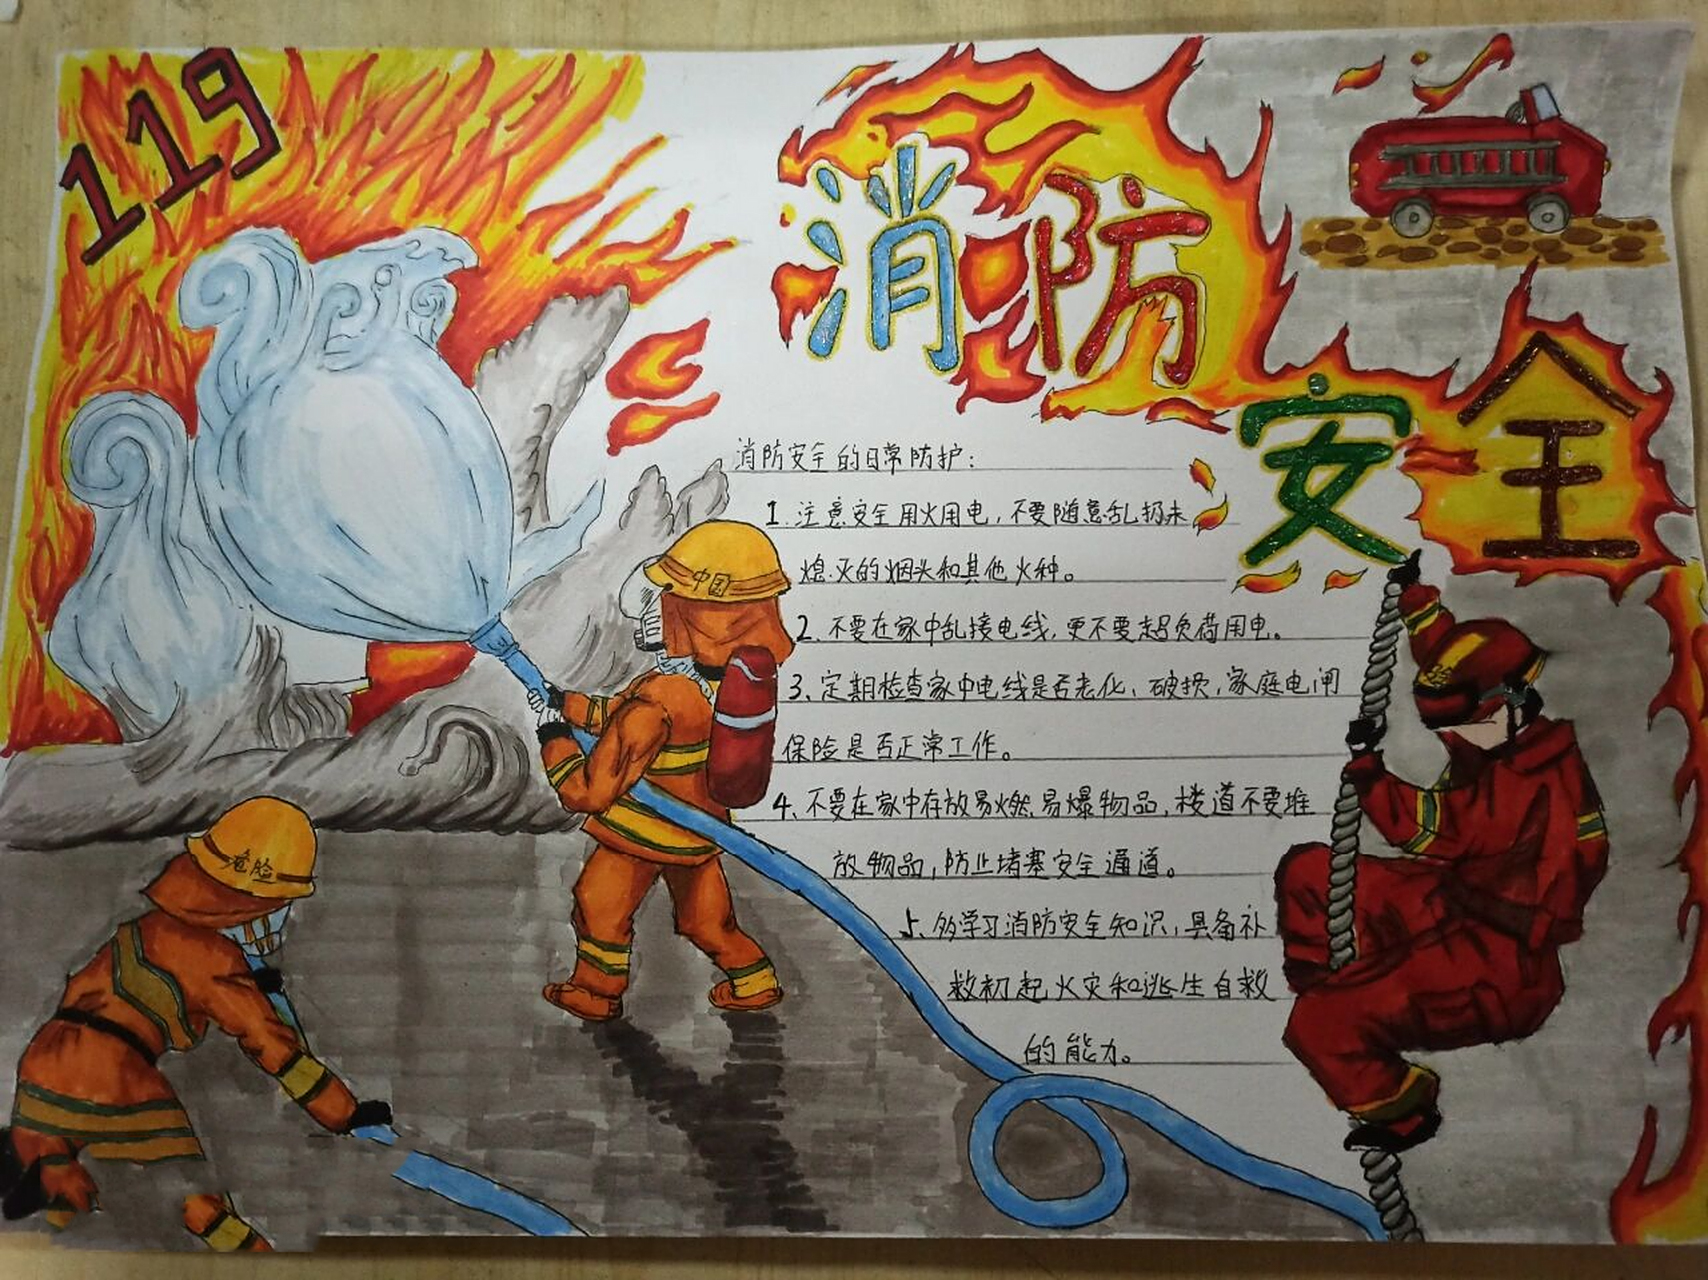 119
消防安全
消防安全的日常防护：
1.注意安全用火用电，不要随意乱扔未
熄灭的烟头和其他火种。
2、不要在家中乱接电线，更不要超负荷用电。
3、定期检查家中电线是否老化、破损，家庭电闸
保险是否正常工作。
4、不要在家中存放易燃易爆物品，楼道不要堆
放物品，防止堵塞安全通道。
5、多学习消防安全知识，具备补
救初起火灾和逃生自救
的能力。
中国
危险